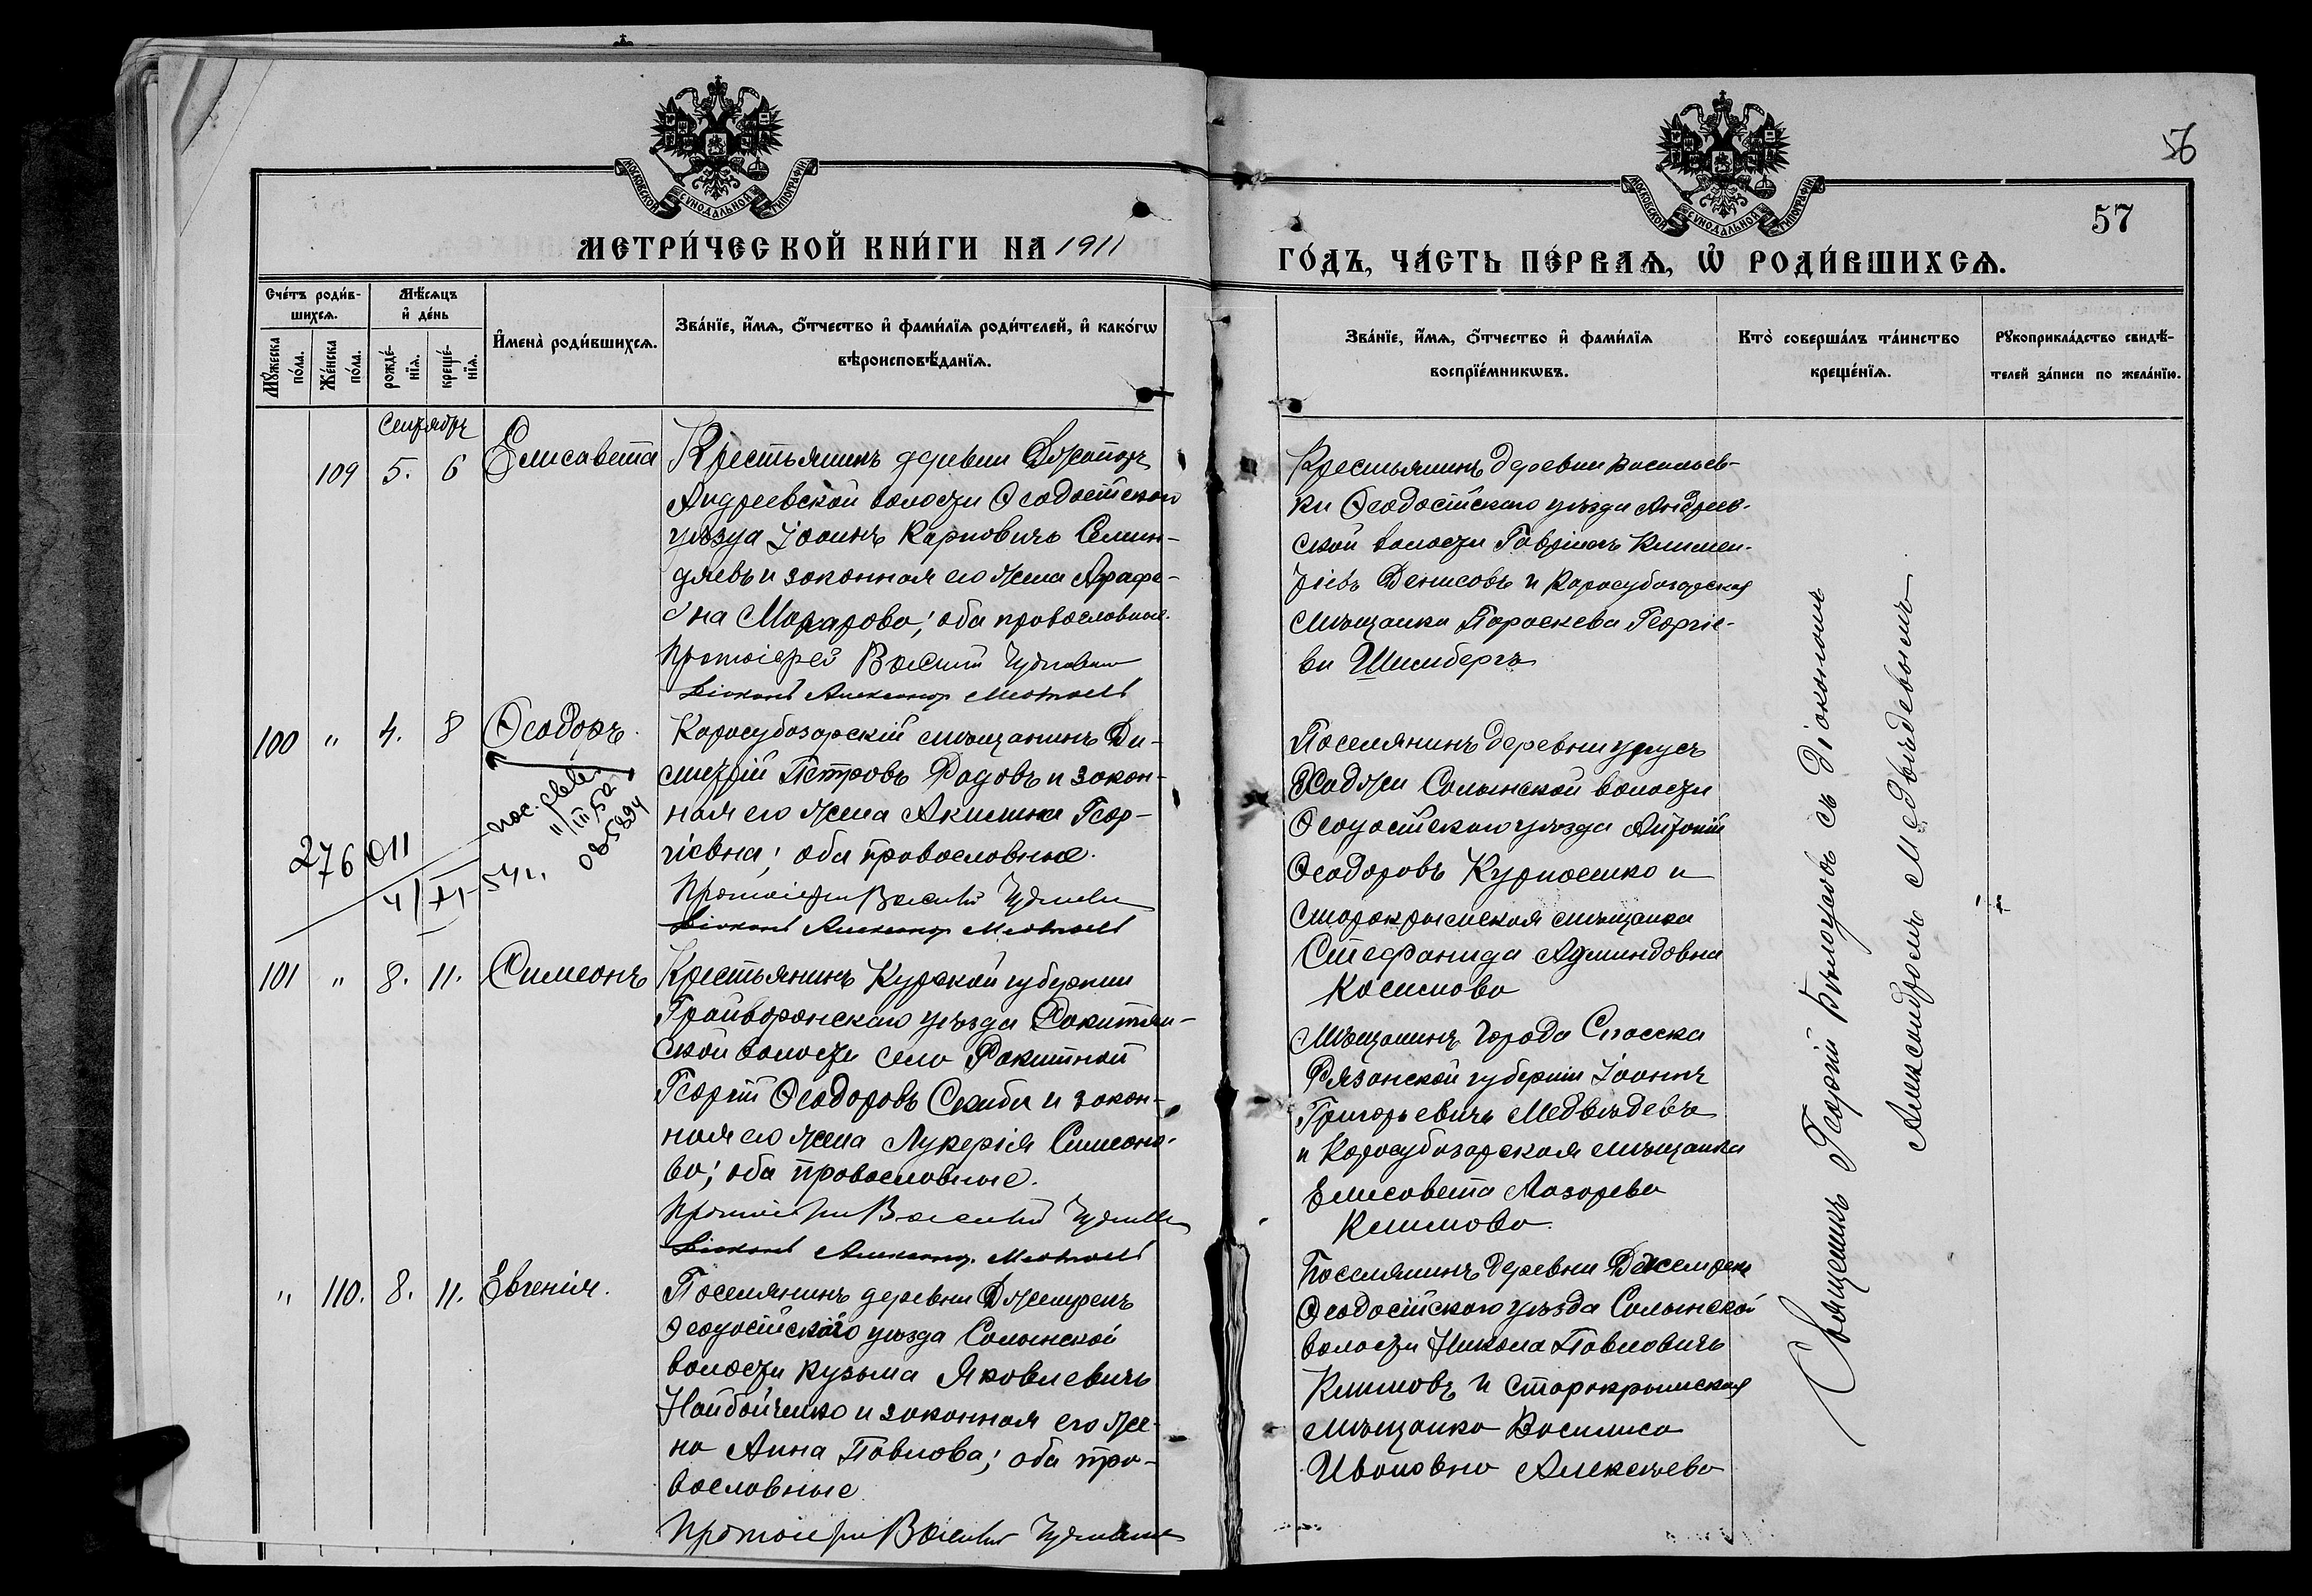 56
57
МОСКОВСКОЙ СѴНОДАЛЬНОЙ ТИПОГРАФІИ
МОСКОВСКОЙ СѴНОДАЛЬНОЙ ТИПОГРАФІИ
МЕТРИ́ЧЕСКОЙ КНИ́ГИ НА 1911
ГО́ДЪ, ЧА́СТЬ ПЕ́РВАѦ, Ѡ҆ РОДИ́ВШИХСѦ.
Сче́тъ роди́в-
шихсѧ.
Мѣ́сѧцъ
и҆ де́нь
Мꙋ́жеска
по́ла.
Же́нска
по́ла.
рожде́-
нїѧ.
креще́-
нїѧ.
И҆мена̀ роди́вшихсѧ.
Зва́нїе, и҆́мѧ, ѻ҆́тчество и҆ фами́лїѧ роди́телей, и҆ како́гѡ
вѣроисповѣ́данїѧ.
Зва́нїе, и҆́мѧ, ѻ҆́тчество и҆ фами́лїѧ
воспрїе́мникѡвъ.
Кто̀ соверша́лъ та́инство
креще́нїѧ.
Рꙋкоприкла́дство свидѣ́-
телей за́писи по жела́нїю.
Сентябрь
109 5. 6 Елисавета
Крестьянинъ деревни
Андреевской волости Ѳеодосійскаго
уѣзда Іоаннъ Карповичъ Семин-
дяевъ и законная его жена Аграфе-
на Макарова; оба православные.
Протоіерей Василій
Діаконъ Александр
Крестьянинъ деревни Васильев-
ки Ѳеодосійскаго уѣзда Андреев-
ской волости Гавріилъ Климен-
тіевъ Денисовъ и Карасубазарская
мѣщанка Параскева Георгіе-
ва Шимбергъ
100 " 4. 8 Ѳеодоръ.
Карасубазарскій мѣщанинъ Ди-
митрій Петровъ Радовъ и закон-
ная его жена Акилина Геор-
гіевна; оба православные.
Протоіерей Василій
Діаконъ Александр
пос. свѣд.
11/III 50
085894
276011
4/XI-54 г.
Поселянинъ деревни
Хаджи Салынской волости
Ѳеодосійскаго уѣзда Антоній
Ѳеодоровъ Курносенко и
старокрымская мѣщанка
Стефанида
Косимова
101 " 8. 11. Симеонъ
Крестьянинъ Курской губерніи
Грайворонскаго уѣзда Ракитян-
ской волости село Ракитной
Георгій Ѳеодоровъ Скиба и закон-
ная его жена Лукерія Симеоно-
ва; оба православные.
Протоіерей Василій
Діаконъ Александр
Мѣщанинъ города Спасска
Рязанской губерніи Іоаннъ
Григорьевичъ Медвѣдевъ
и Карасубазарская мѣщанка
Елисавета Лазарева
Климова.
" 110. 8. 11. Евгенія.
Поселянинъ деревни Джемрекъ
Ѳеодосійскаго уѣзда Салынской
волости Кузьма Яковлевичъ
Найбойченко и законная его же-
на Анна Павлова; оба пра-
вославные
Протоіерей Василій
Поселянинъ деревни Джемрекъ
Ѳеодосійскаго уѣзда Салынской
волости Никола Павловичъ
Климовъ и старокрымская
мѣщанка Василиса
Ивановна Алексѣева
Священникъ Георгій съ Діакономъ
Александромъ Медвѣдевымъ